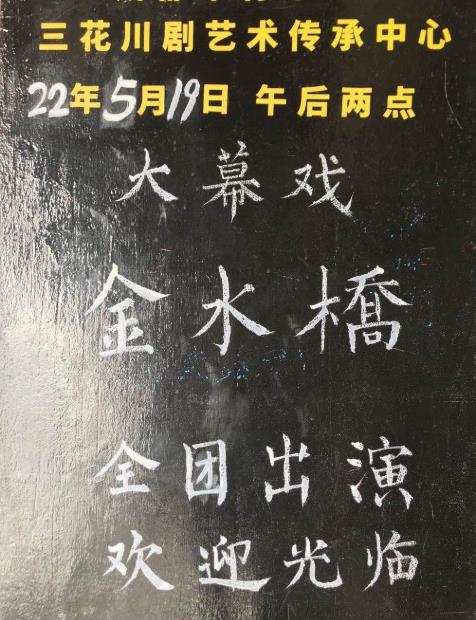 三花川剧艺术传承中心
22年5月19日 午后两点
大幕戏
金水橋
全团出演
欢迎光临